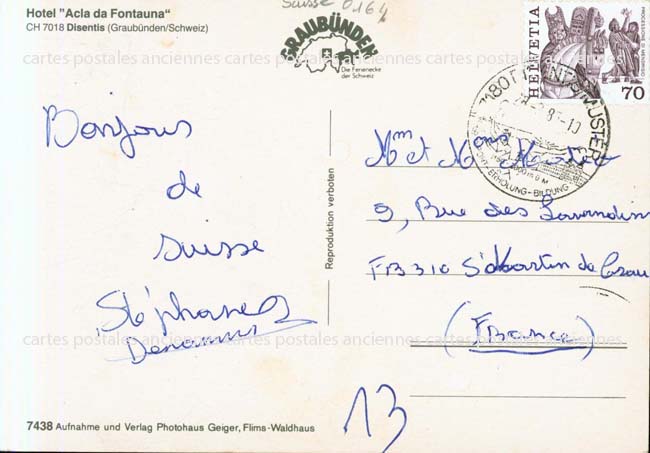 Suisse 0164
Hotel "Acla da Fontauna"
CH 7018 Disentis (Graubünden/Schweiz)
GRAUBÜNDEN
Die Ferienecke
der Schweiz
HELVETIA
70
MUSTER
ERHOLUNG - BILDUNG
cartes postales anciennes cartes postales anciennes cartes postales anciennes
Bonjour
de
suisse
Stéphane
Reproduktion verboten
Mm et Mons
9, Rue des
13310 St Martin de Crau
(France)
13
cartes postales anciennes cartes postales anciennes cartes postales anciennes
7438 Aufnahme und Verlag Photohaus Geiger, Flims-Waldhaus